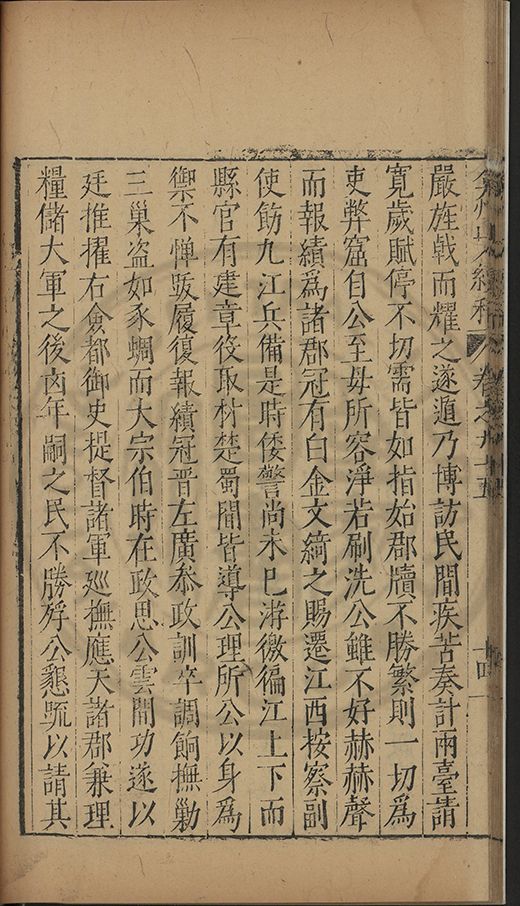 弇州山人續稿 卷之九十五 十四
嚴旌戟而耀之遂遁乃博訪民間疾苦奏計兩臺請
寬歲賦停不切需皆如指始郡牘不勝繁則一切爲
吏弊窟自公至毋所容淨若刷洗公雖不好赫赫聲
而報績爲諸郡冠有白金文綺之賜遷江西按察副
使飭九江兵備是時倭警尚未巳游徼徧江上下而
縣官有建章役取材楚蜀間皆導公理所公以身爲
禦不憚跋履復報績冠晋左廣叅政訓卒調餉撫勦
三巢盗如豕蜩而大宗伯時在政思公雲間功遂以
廷推擢右僉都御史提督諸軍廵撫應天諸郡兼理
糧儲大軍之後㐫年嗣之民不勝殍公懇䟽以請其